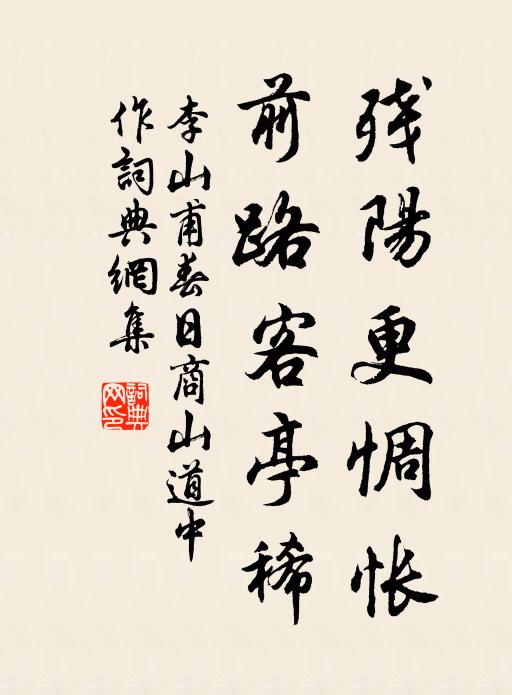 残陽更惆怅
前路客亭稀
李山甫春日商山道中
作詞典網集
詞典網印